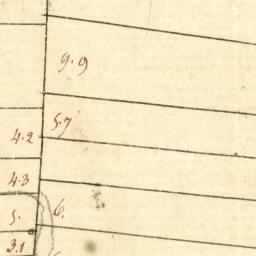 9.9
5.7
4.2
4.3
5.
6.
3.1